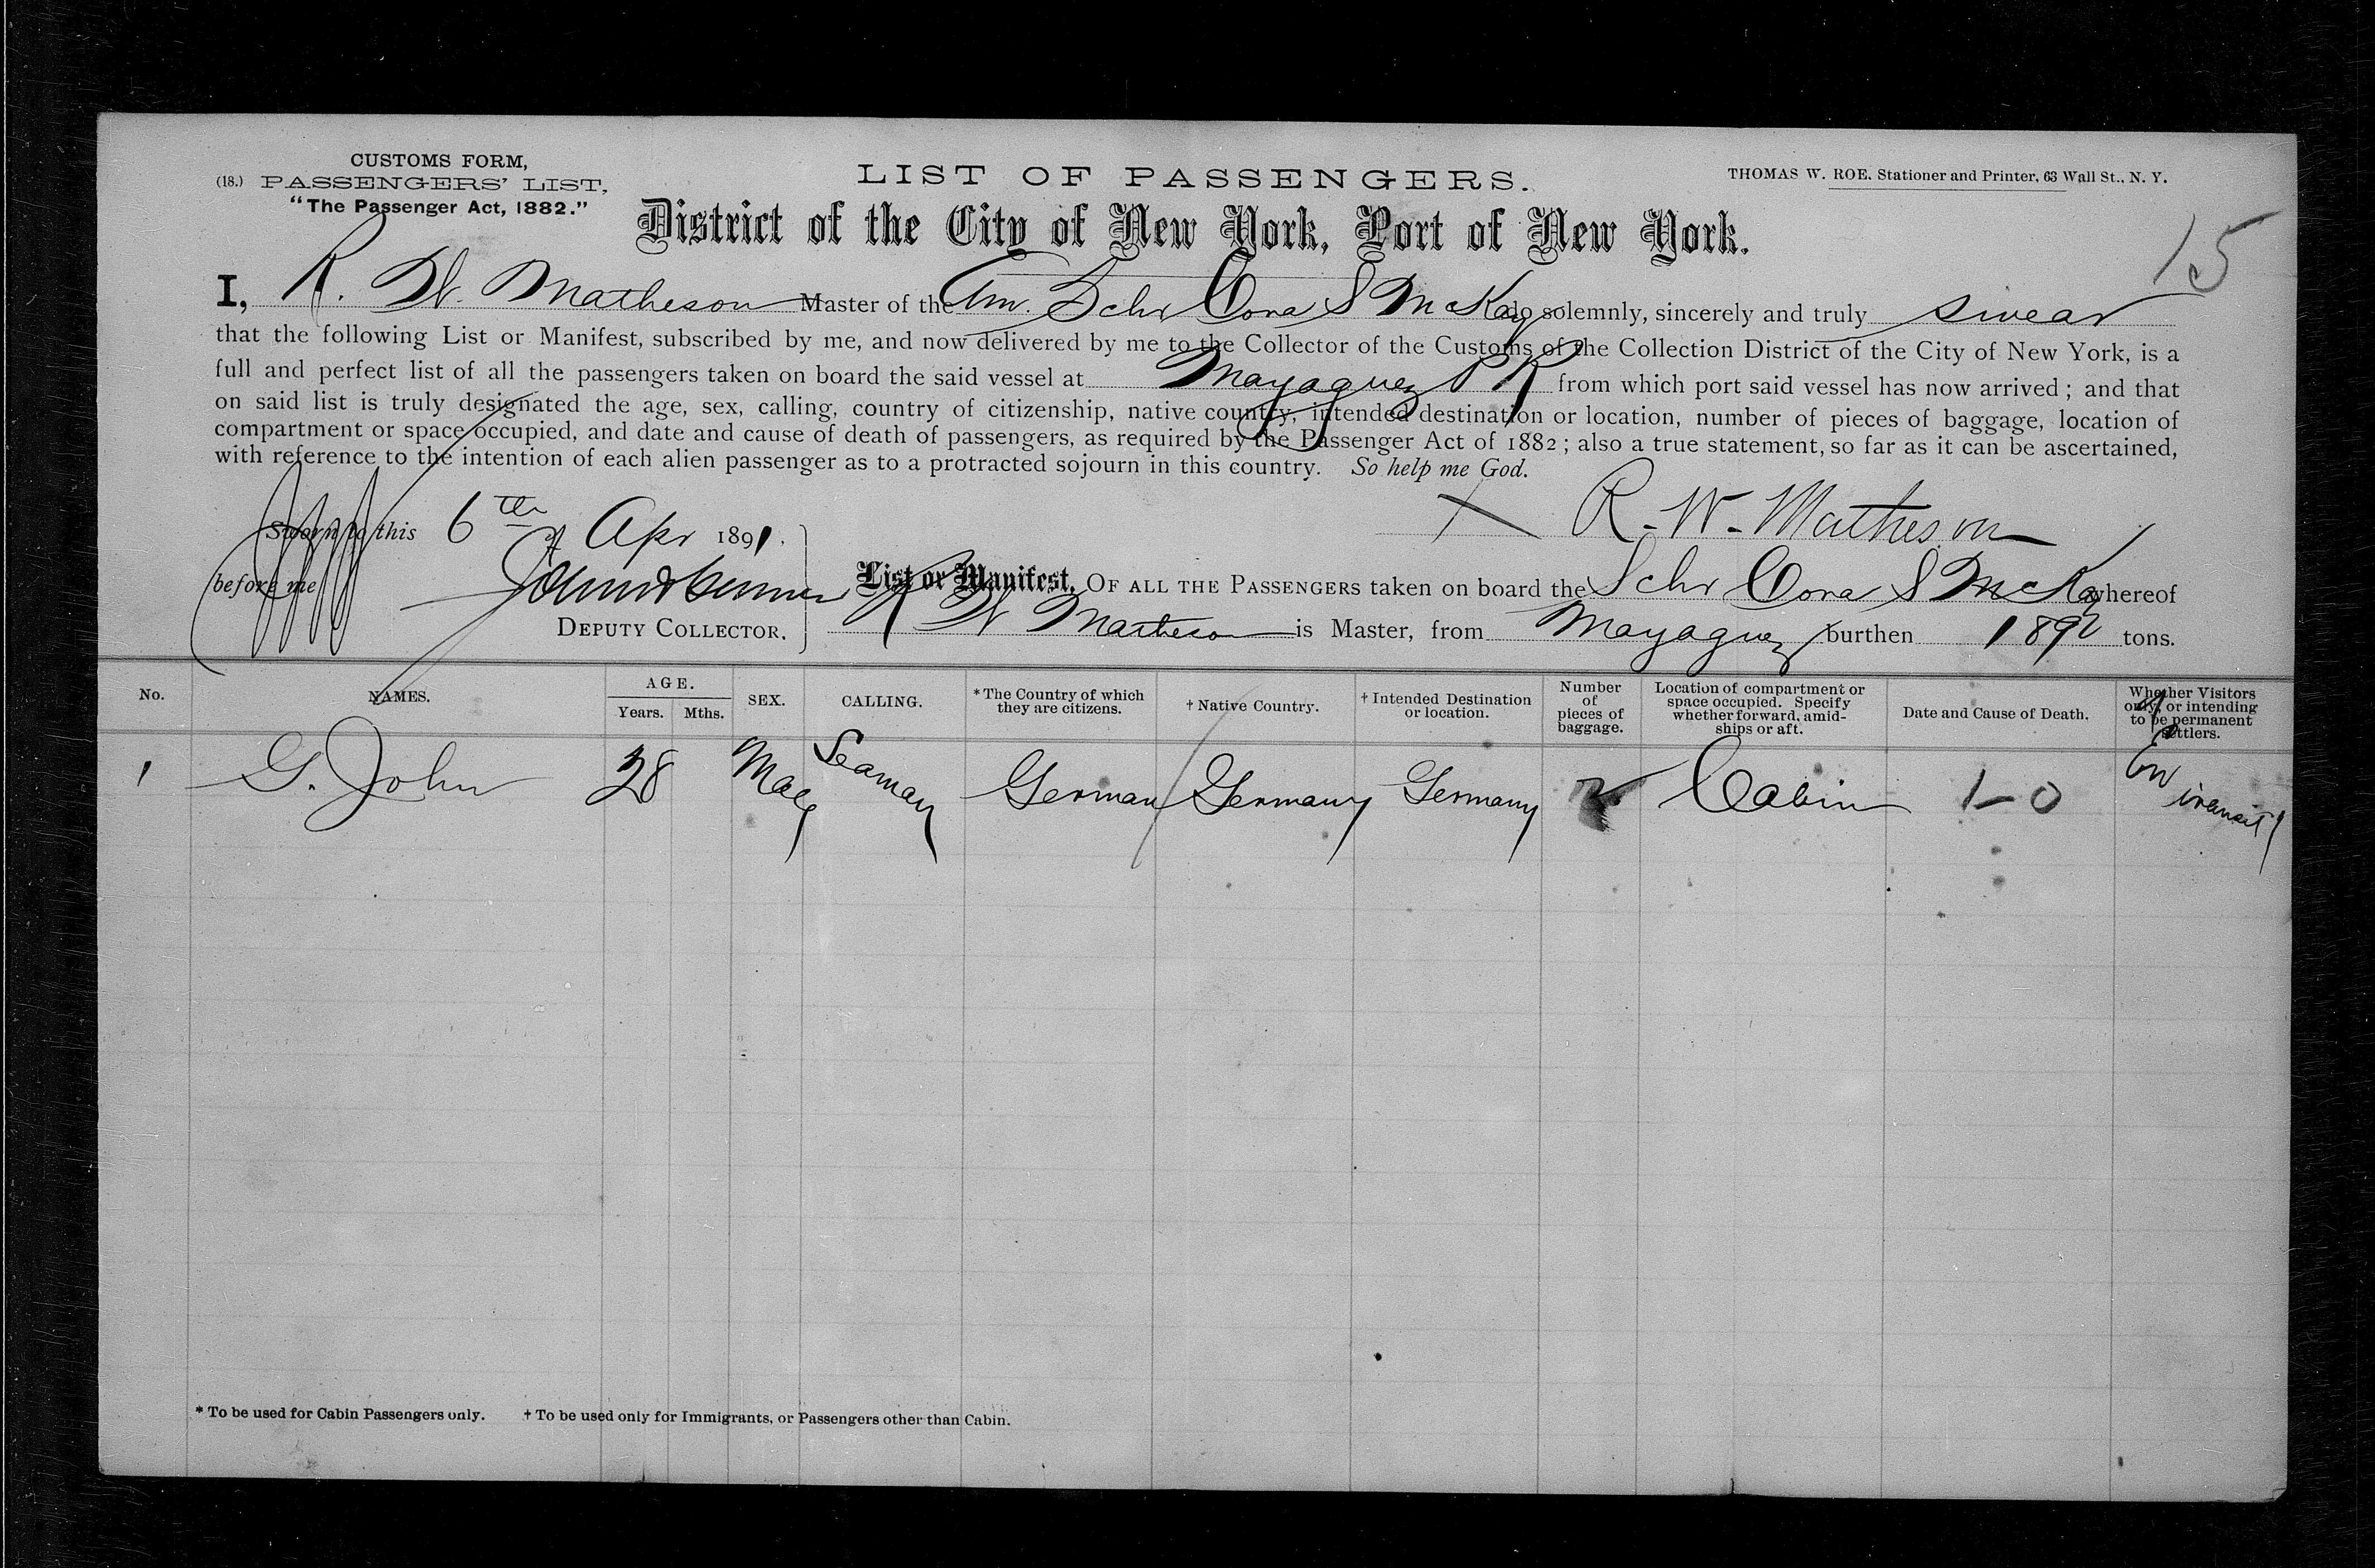 CUSTOMS FORM,
(18.) PASSENGERS' LIST,
"The Passenger Act, 1882."
LIST OF PASSENGERS.
THOMAS W. ROE, Stationer and Printer, 63 Wall St., N. Y.
District of the City of New York, Port of New York.
15
I, R. W. Matheson Master of the Am. Schr Cora S McKay do solemnly, sincerely and truly swear
that the following List or Manifest, subscribed by me, and now delivered by me to the Collector of the Customs of the Collection District of the City of New York, is a
full and perfect list of all the passengers taken on board the said vessel at Mayaguez P R from which port said vessel has now arrived; and that
on said list is truly designated the age, sex, calling, country of citizenship, native country, intended destination or location, number of pieces of baggage, location of
compartment or space occupied, and date and cause of death of passengers, as required by the Passenger Act of 1882; also a true statement, so far as it can be ascertained,
with reference to the intention of each alien passenger as to a protracted sojourn in this country. So help me God.
Sworn to this 6th of Apr 1891.
X R. W. Matheson
before me
DEPUTY COLLECTOR.
List or Manifest, OF ALL THE PASSENGERS taken on board the Schr Cora S McKay whereof
R W Matheson is Master, from Mayaguez burthen tons.
No. NAMES. AGE. Years. Mths. SEX. CALLING. *The Country of which they are citizens. †Native Country. †Intended Destination or location. Number of pieces of baggage. Location of compartment or space occupied. Specify whether forward, amidships or aft. Date and Cause of Death. Whether Visitors only, or intending to be permanent settlers.
1 G. John 28 Male Seaman German Germany Germany Cabin En transit
* To be used for Cabin Passengers only. † To be used only for Immigrants, or Passengers other than Cabin.